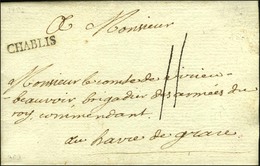 A Monsieur
CHABLIS
Monsieur le comte de virieu
beauvoir, brigadier des armées du
roy, commendant
au havre de grace